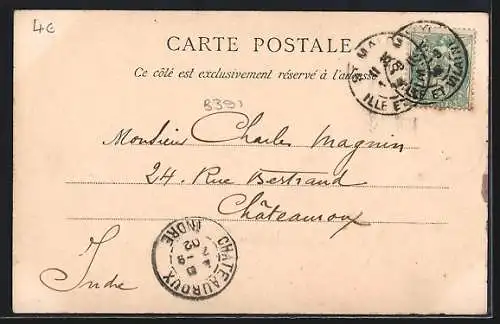 4€
CARTE POSTALE
Ce côté est exclusivement réservé à l'adresse
B391
Monsieur Charles Magnin
24. Rue Bertrand
Châteauroux
Indre
CHATEAUROUX
INDRE
ILLE ET